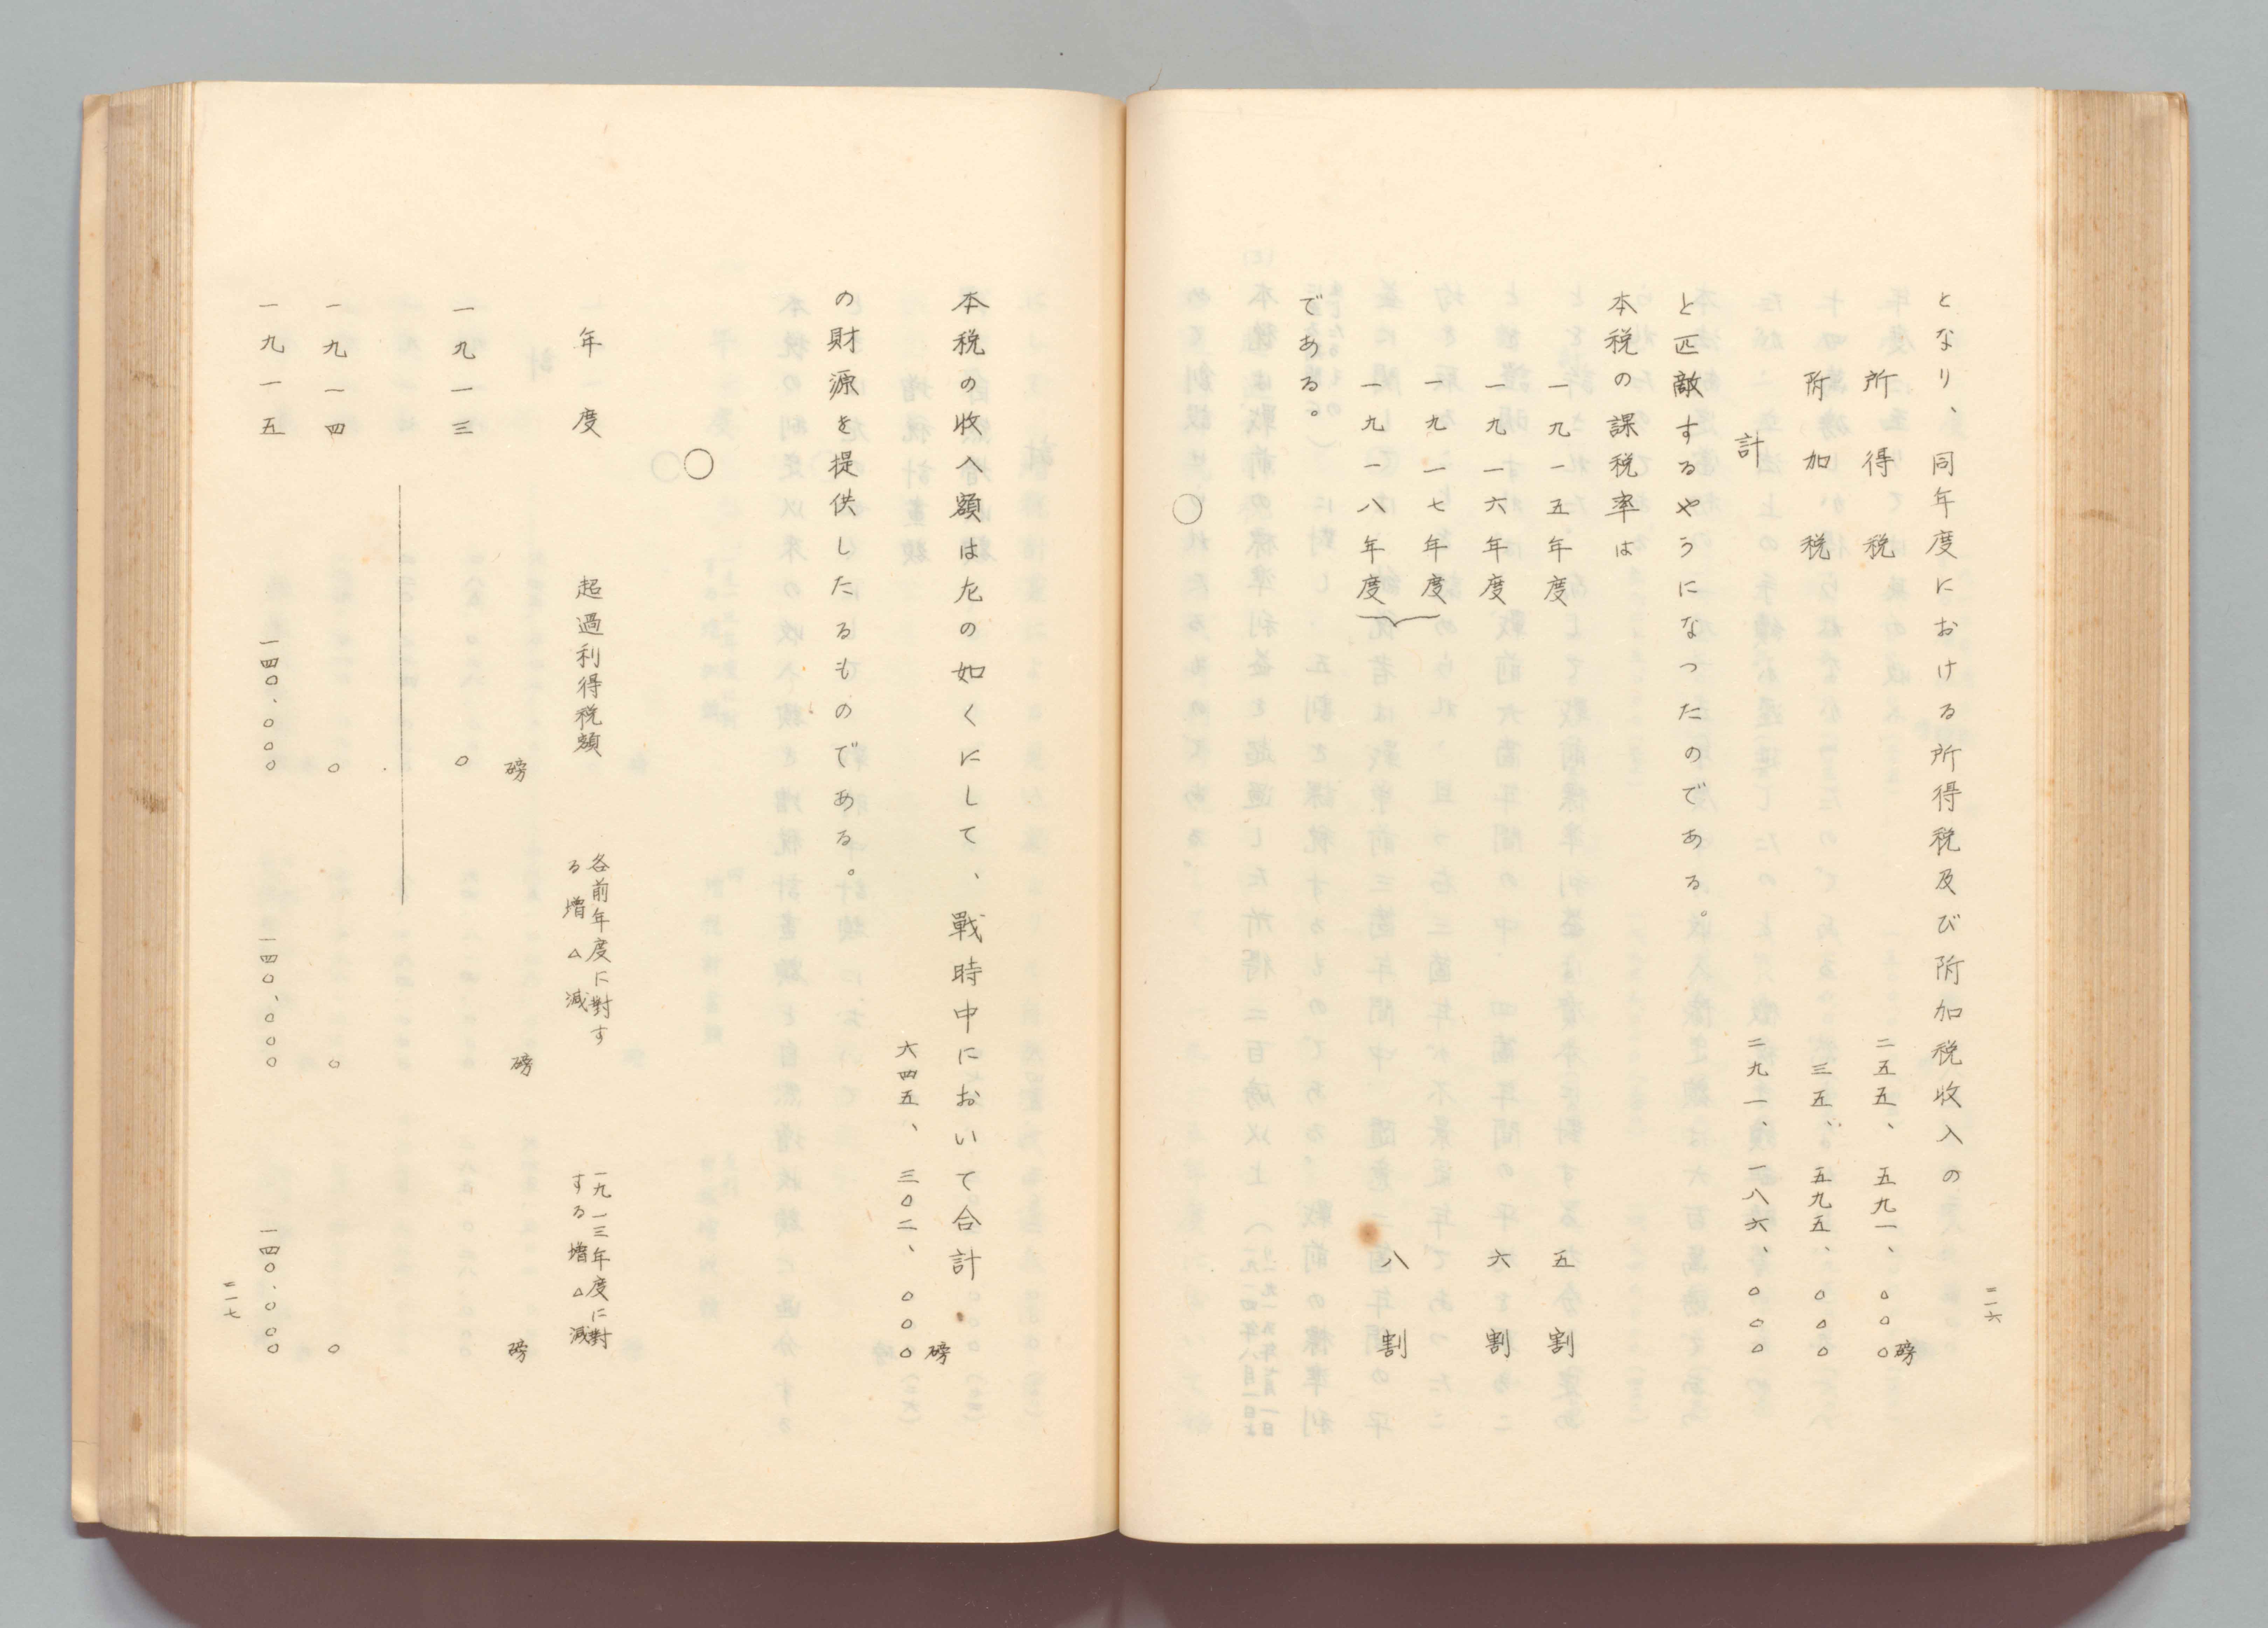 となり、同年度における所得税及び附加税收入の
所得税　二五五、五九一、〇〇〇磅
附加税　三五、五九五、〇〇〇
計　二九一、一八六、〇〇〇
と匹敵するやうになつたのである。
本税の課税率は
一九一五年度　五割
一九一六年度　六割
一九一七年度
一九一八年度　八割
である。
〇
二一六
本税の收入額は左の如くにして、戰時中において合計
六四五、三〇二、〇〇〇磅
の財源を提供したるものである。
〇
年度　超過利得税額　各前年度に對する増△減　一九一三年度に對する増△減
磅　磅　磅
一九一三　〇
一九一四　〇　〇　〇
一九一五　一四〇.〇〇〇　一四〇.〇〇〇　一四〇.〇〇〇
二一七